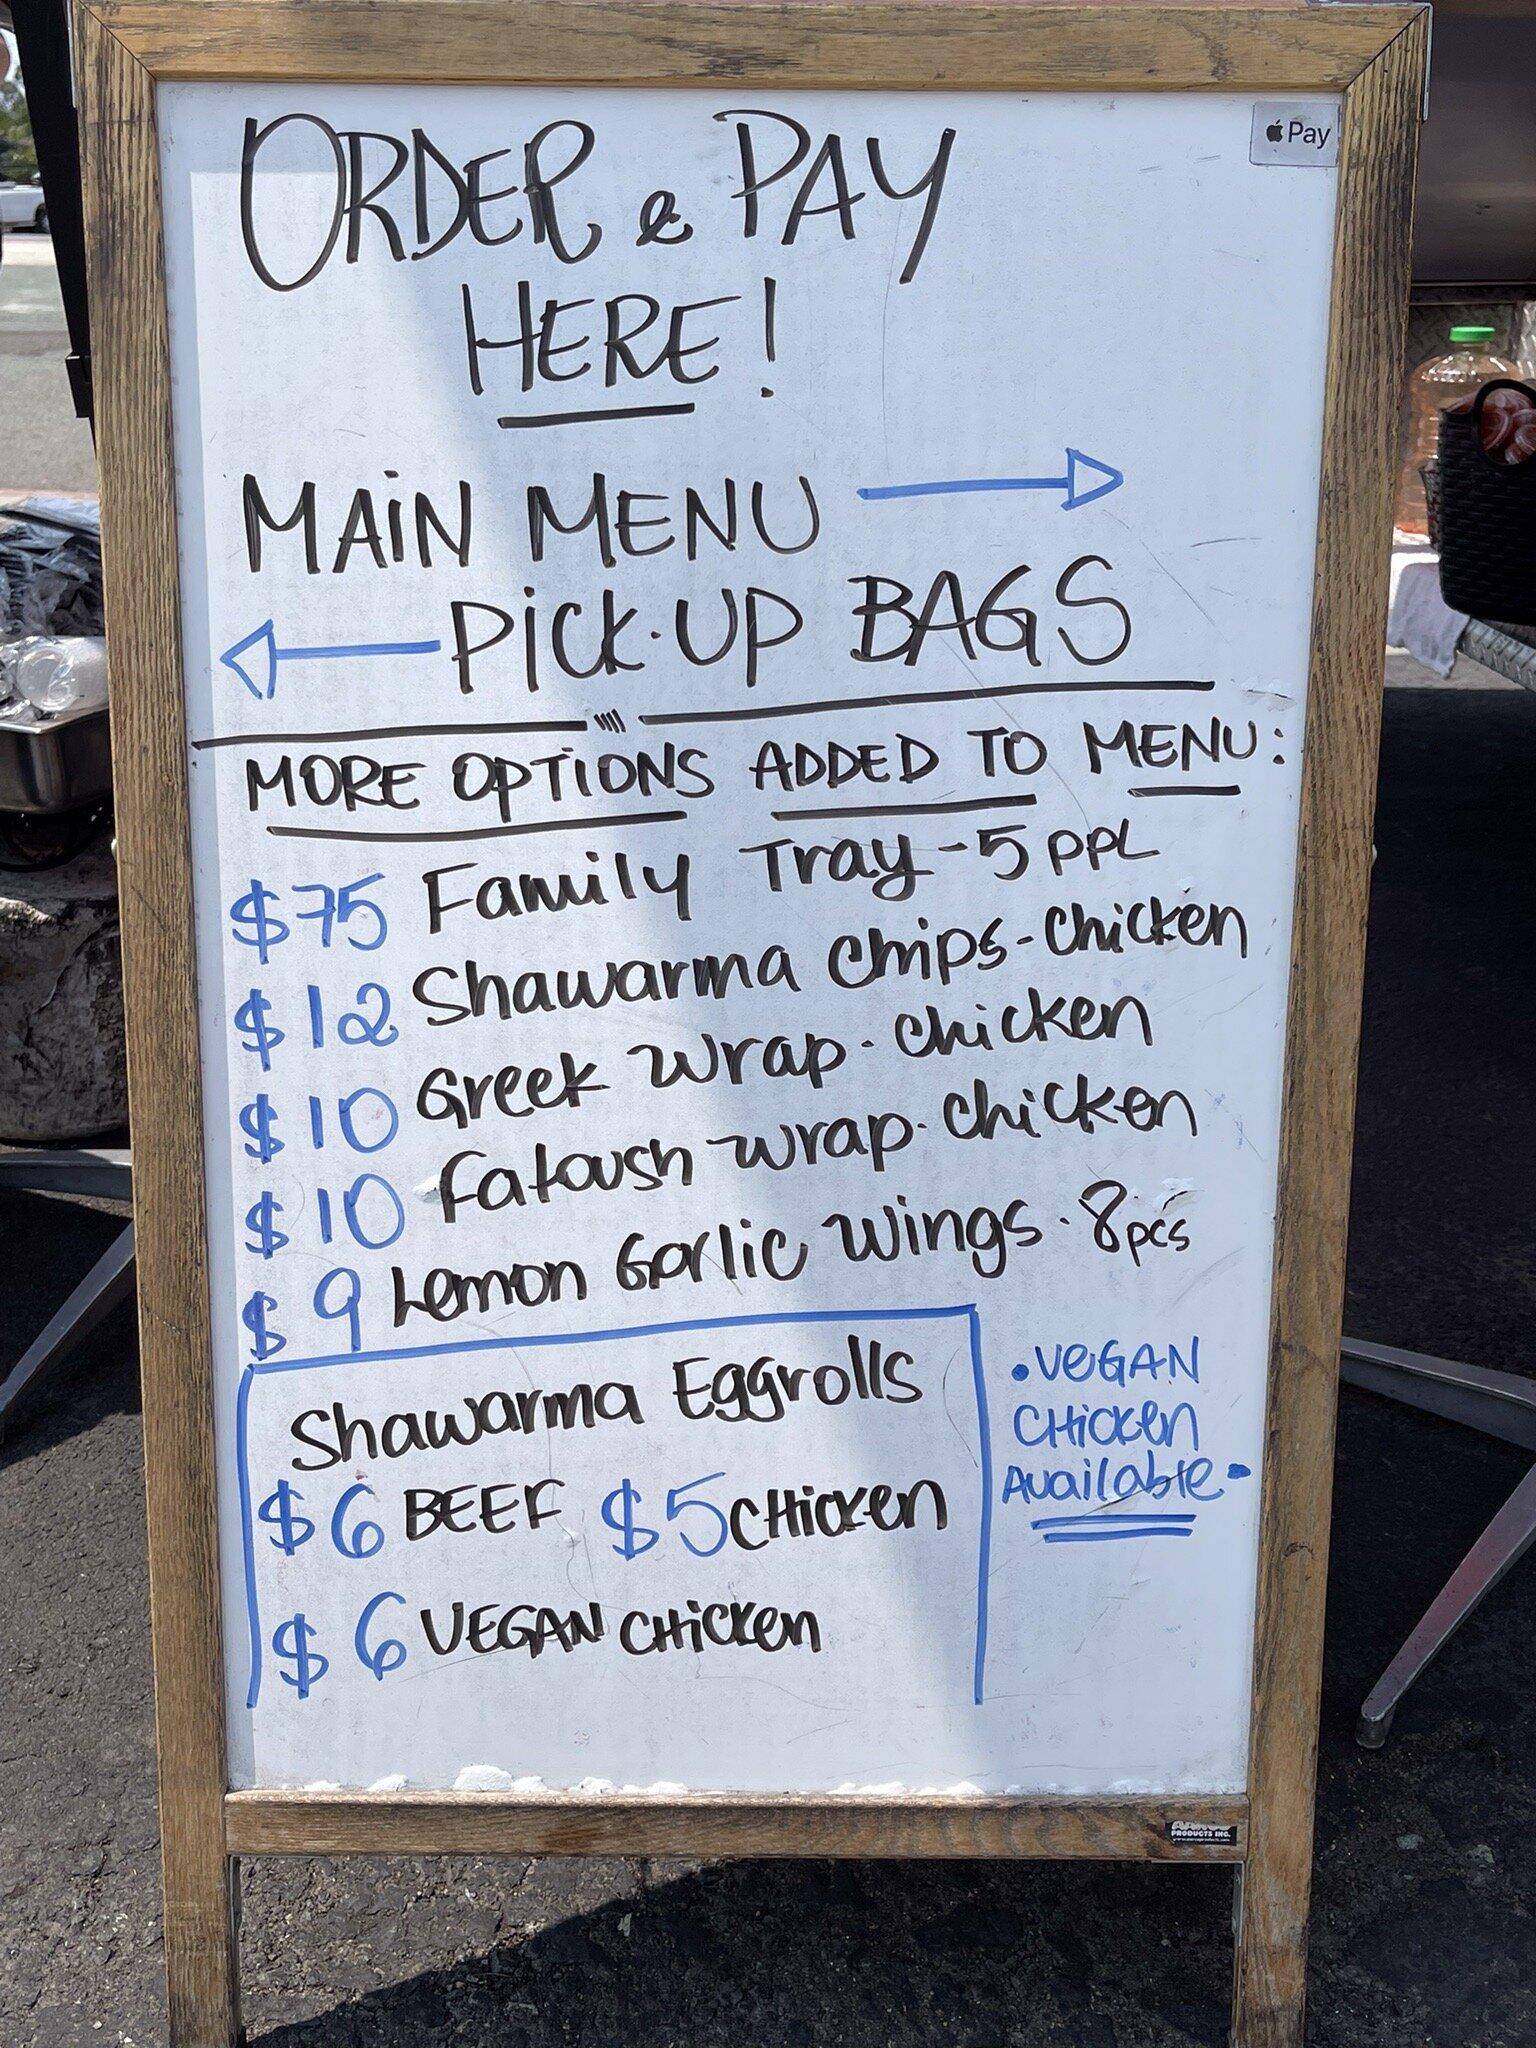 ORDER & PAY
HERE!
Pay
MAiN MENU
PiCK·UP BAGS
MORE OPTiONS ADDED TO MENU:
$75 Family Tray - 5 PPL
$12 Shawarma Chips - Chicken
$10 Greek Wrap · Chicken
$10 Fatoush Wrap · Chicken
$9 Lemon Garlic Wings · 8pcs
Shawarma Eggrolls
$6 BEEF $5 CHicken
$6 VEGAN CHicken
• VEGAN
CHicken
Available •
PRODUCTS INC.